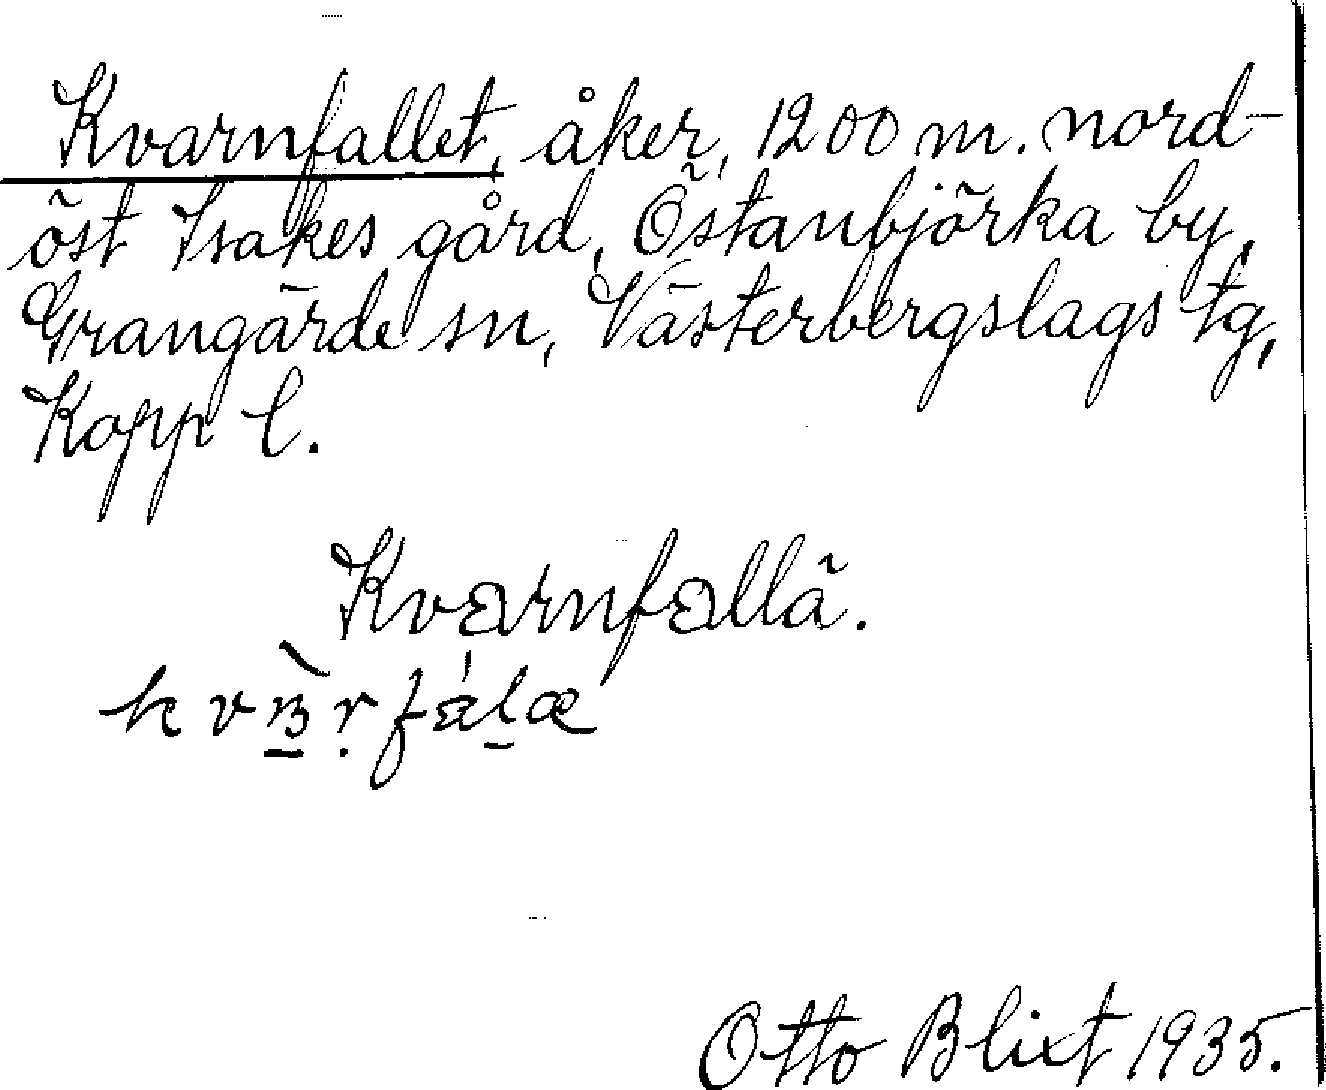 Kvarnfallet, åker, 1200 m. nord-
öst Isakes gård, Östanbjörka by,
Grangärde sn, Västerbergslags tg,
Kopp l.
Kvarnfallä.
Otto Blixt 1935.